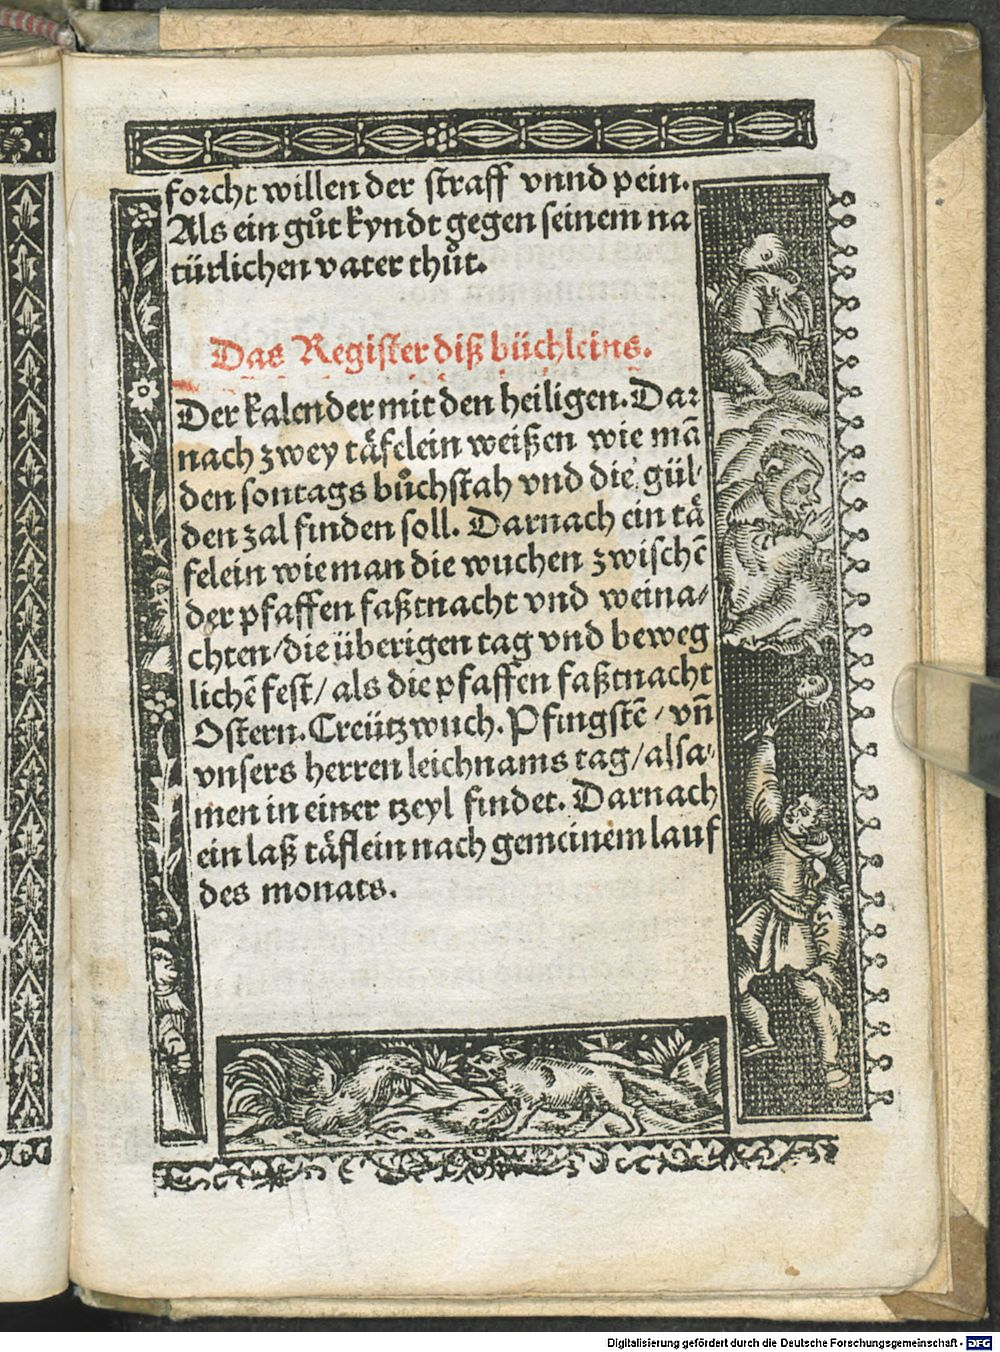 forcht willen der straff vnnd pein.
Als ein gůt kyndt gegen seinem na
türlichen vater thůt.
Das Register diß büchleins.
Der kalender mit den heiligen. Dar⸗
nach zwey täfelein weißen wie mā
den sontags bůchstah vnd die gül⸗
den zal finden soll. Darnach ein tä
felein wie man die wuchen zwischē
der pfaffen faßtnacht vnd weina⸗
chten/die überigen tag vnd beweg
lichē fest/ als die pfaffen faßtnacht
Ostern. Creützwuch. Pfingstē / vn̄
vnsers herren leichnams tag/alsa⸗
men in einer tzeyl findet. Darnach
ein laß täflein nach gemeinem lauf
des monats.
Digitalisierung gefördert durch die Deutsche Forschungsgemeinschaft - DFG